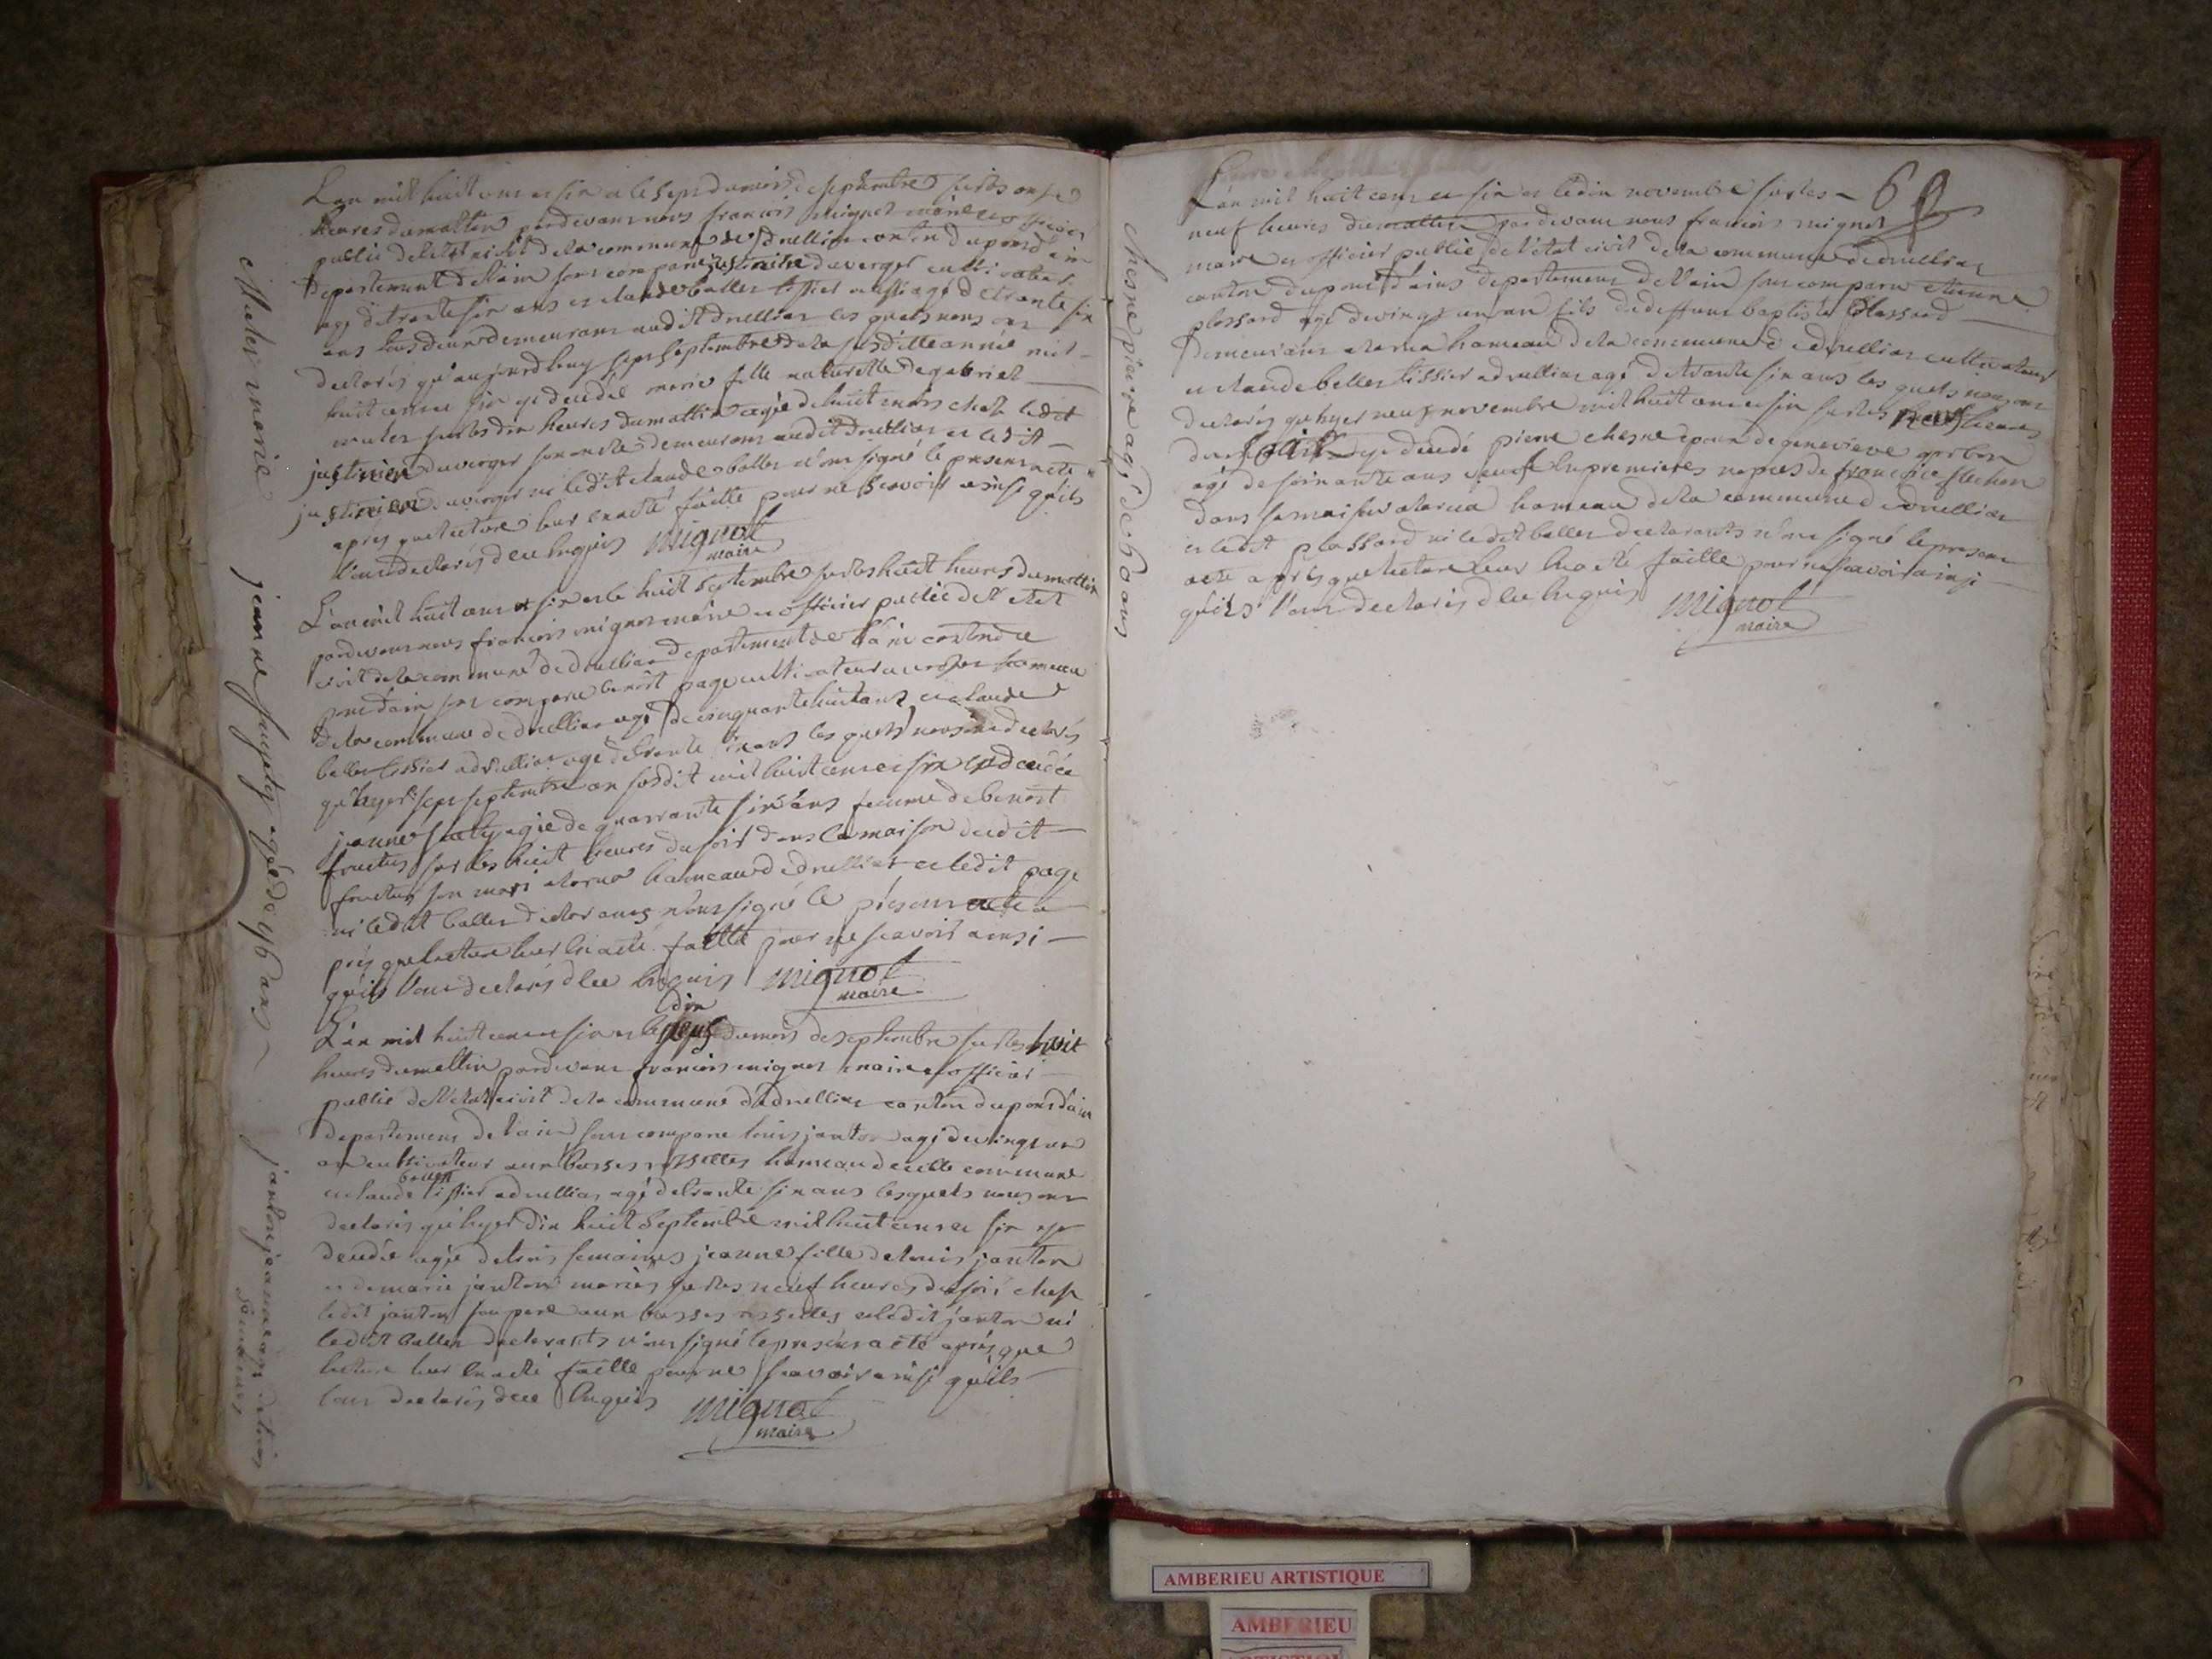 L'an mil huit cens et six et le sept du mois de septembre sur les onze
heures du mattin pardevant nous francois mignot maire et officier
public de l'etat civil de la commune de druillia canton du pond d'ain
departement de l'ain sont comparu justinien duverger cultivateur
agé de trante six ans et claude ballet tissier aussi agé de trante six
ans tous deux demeurans audit druilliat les quels nous ont
declarés qu'aujourd huy sept septembre de la susditte année mil
huit cens six est decedée marie fille naturelle de gabriel
mulet sur les dix heures du mattin agée de huit mois chez ledit
justinien duverger son oncle demeurant audit druilliat et ledit
justinien duverger ni ledit claude ballet n'ont signé le present acte
apres que lecture leur en a eté faitte pour ne scavoir ainsi qu'ils
l'ont declarés de ce enquis mignot
maire
L'an mil huit cens et six et le huit septembre sur les huit heures du mattin
pardevant nous francois mignot maire et officier public de l'etat
civil de la commune de druilliat departement de l'ain canton de
pont d'ain sont comparu benoit page cultivateur hameau
de la commune de druilliat agé de cinquante huit ans et claude
ballet tissier a druilliat agé de trante six ans les quels nous ont declarés
qu'hyer sept septembre an susdit mil huit cens et six est decedée
jeanne agée de quarrante six ans femme de benoit
fructus sur les huit heures du soir dans la maison dudit
fructus son mari a la rua hameau de druilliat et ledit page
ni ledit ballet declarants n'ont signé le présent acte a
prés que lecture leur en a eté faitte pour ne scavoir ainsi
qu'ils l'ont declarés de ce enquis mignot
maire
dix
L'an mil huit cens et six et le neuf du mois de septembre sur les huit
heures du mattin pardevant francois mignot maire et officier
public de l'état civil de la commune de druilliat canton du pont d'ain
departement de l'ain sont comparu louis janton agé de vingt un
an cultivateur aux basses rosselles hameau de cette commune
ballet
et claude tissier a druilliat agé de trante six ans lesquels nous ont
declarés qu'hyer dix huit septembre mil huit cens et six est
decedée agée de trois semaines jeanne fille de louis janton
et de marie janton mariés sur les neuf heures du soir chez
ledit janton son pere aux basses rosselles et ledit janton ni
ledit ballet declarants n'ont signé le present acte aprés que
lecture leur en a eté faitte pour ne scavoir ainsi qu'ils
l'ont declarés de ce enquis mignot
maire
mulet marie
jeanne agée de 46 ans
janton jeanne agée de trois
semaines
69
L'an mil huit cens et six et le dix novembre sur les
neuf heures du mattin pardevant nous francois mignot
maire et officier public de l'état civil de la commune de druilliat
canton du pont d'ains departement de l'ain sont comparu etienne
plossard agé de vingt un an fils de deffunt baptiste plossard
demeurant a la rua hameau de la commune de druilliat cultivateur
et claude ballet tissier a druilliat agé de trante six ans les quels nous ont
declarés qu'hyer neuf novembre mil huit cens et six sur les neuf heures
du soir est decedé pierre chesne epoux de genevieve gerbon
agé de soixante ans veuf en premieres nopces de francoise
dans sa maison a la rua hameau de la commune de druilliat
et ledit plossard ni ledit ballet declarants n'ont signé le present
acte aprés que lecture leur en a eté faitte pour ne scavoir ainsi
qu'ils l'ont declarés de ce enquis mignot
maire
chesne pierre agé de 60 ans
AMBERIEU ARTISTIQUE
AMBERIEU